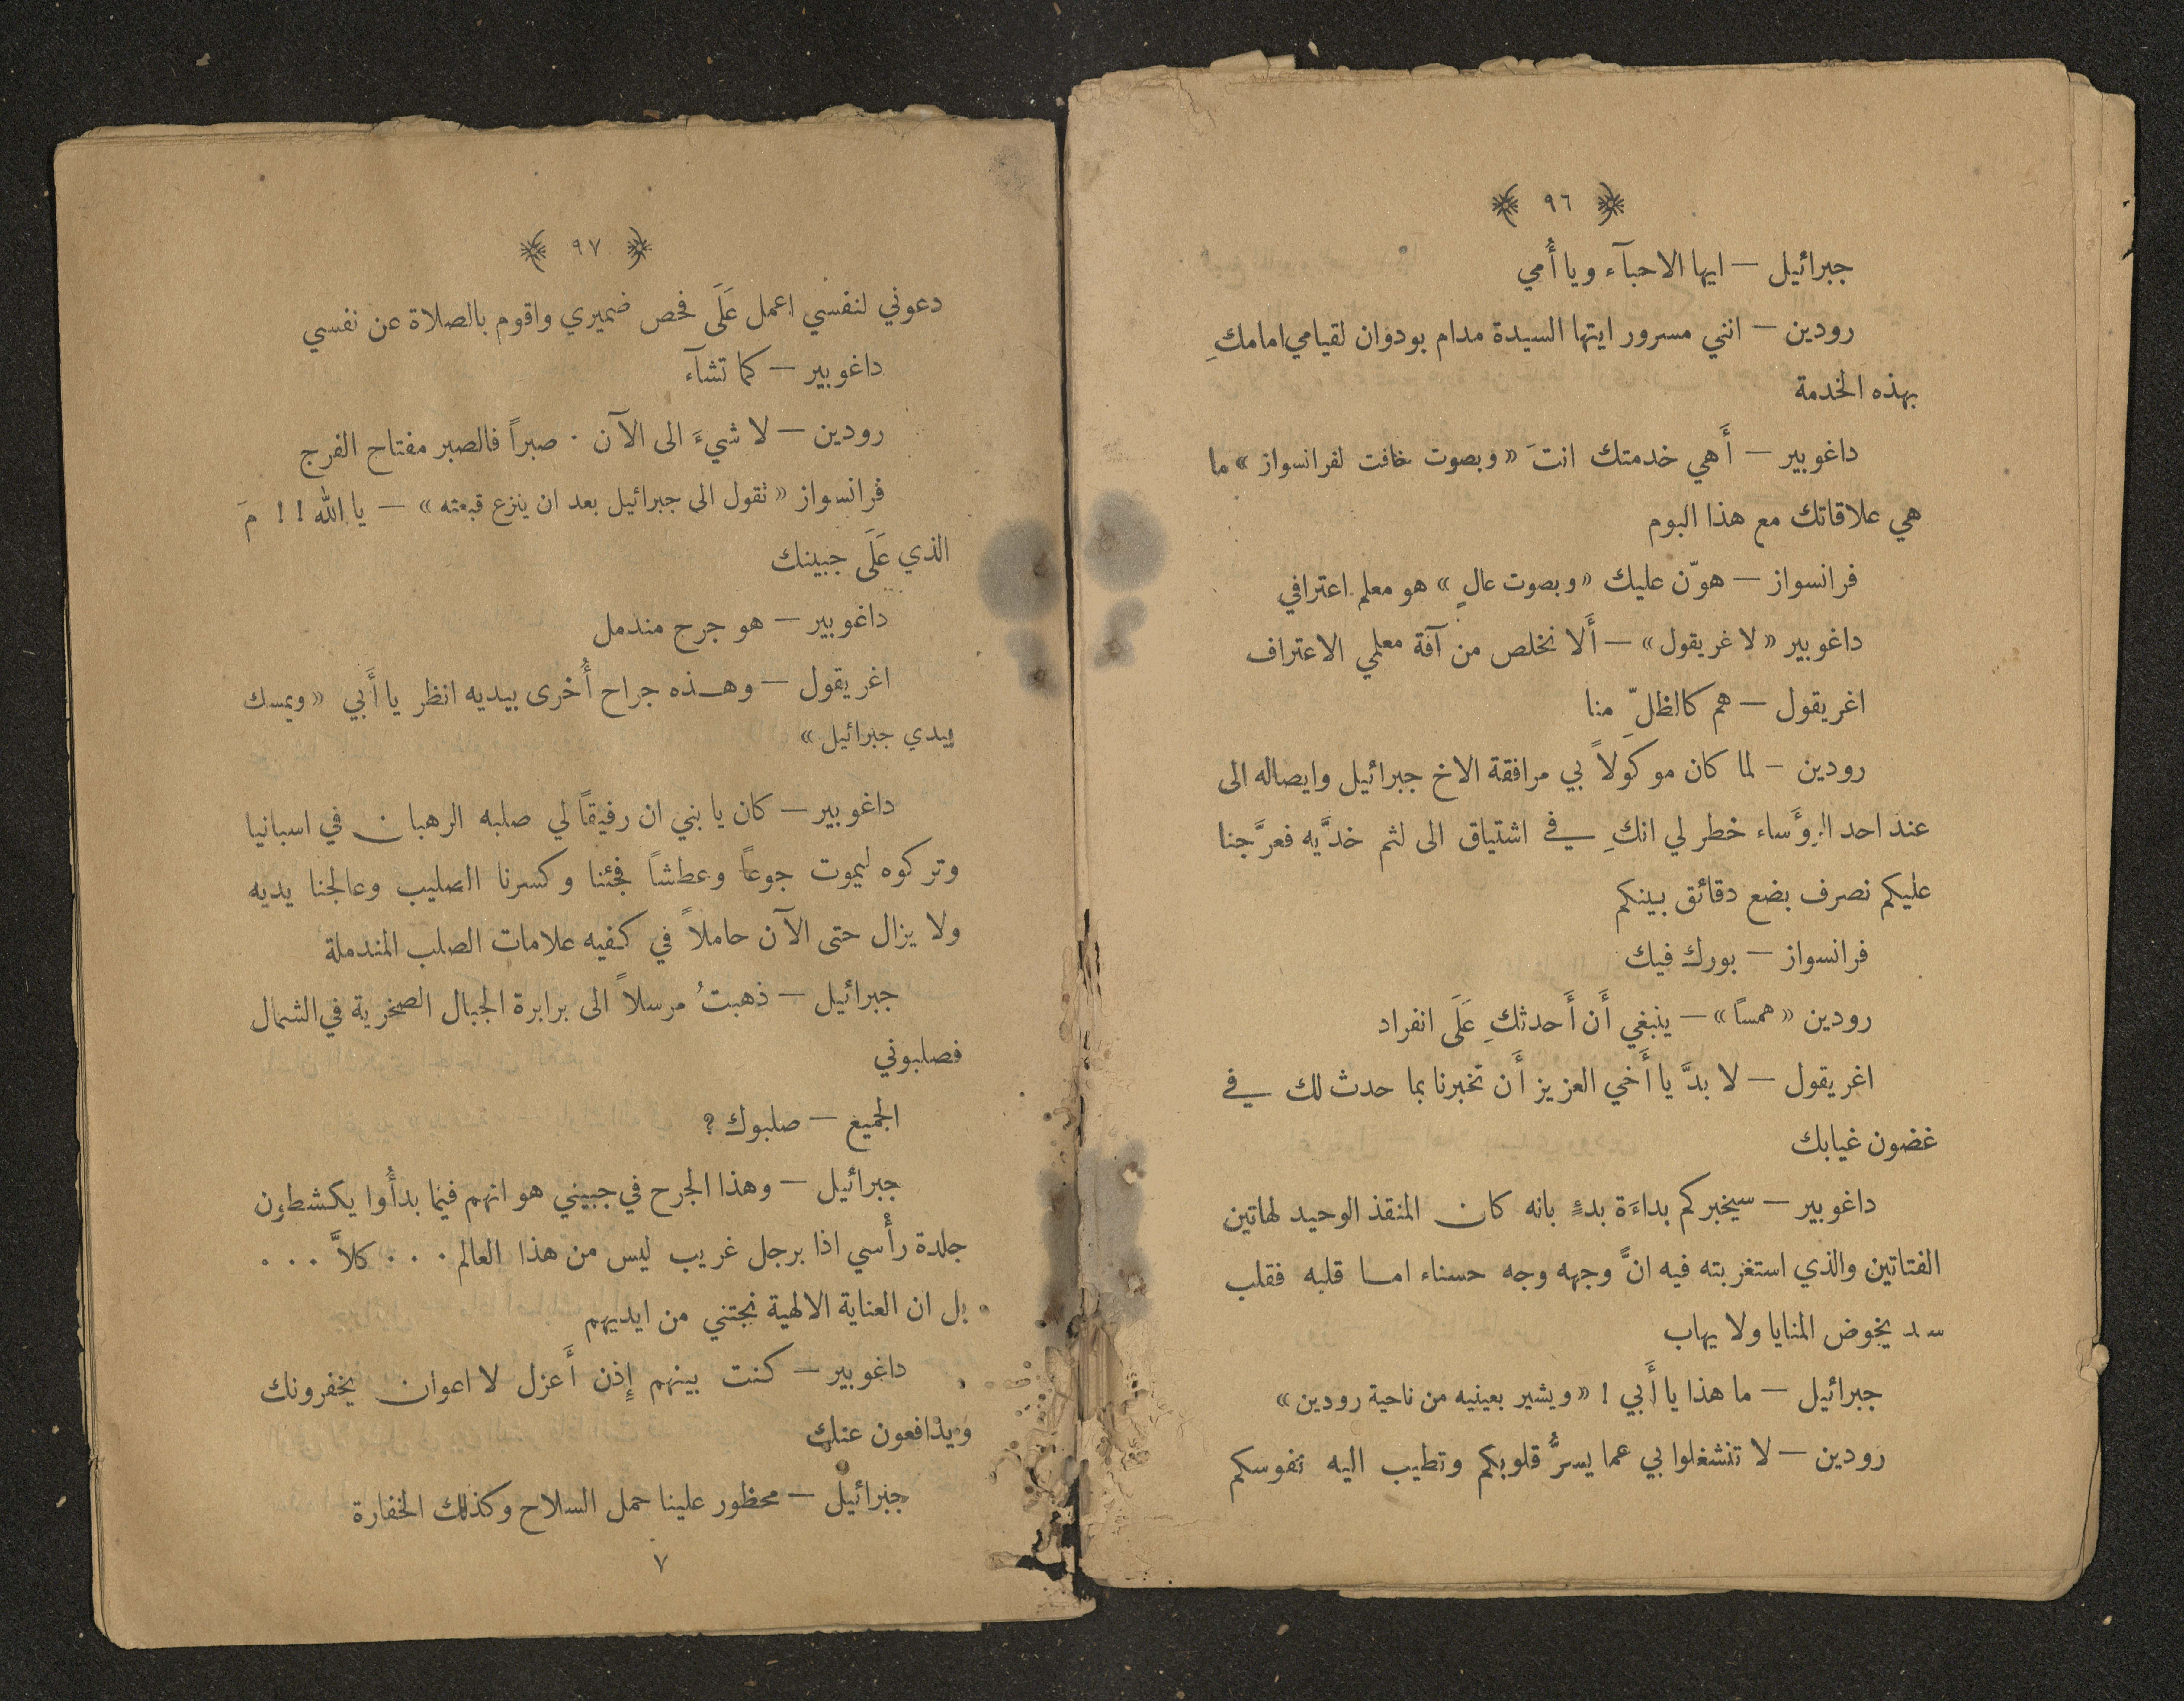 ٩٦
جبرائيل — ايها الاحبآء ويا أُمي
رودين — انني مسرور ايتها السيدة مدام بودوان لقيامي امامكِ
بهذه الخدمة
داغوبير — أَهي خدمتك انتَ «وبصوت خافت لفرانسواز» ما
هي علاقاتك مع هذا البوم
فرانسواز — هوّن عليك «وبصوت عالٍ» هو معلم اعترافي
داغوبير «لاغريقول» — أَلا نخلص من آفة معلمي الاعتراف
اغريقول — هم كالظلّ منا
رودين — لما كان موكولاً بي مرافقة الاخ جبرائيل وايصاله الى
عند احد الرؤَساء خطر لي انكِ في اشتياق الى لثم خدَّيه فعرَّجنا
عليكم نصرف بضع دقائق بينكم
فرانسواز — بورك فيك
رودين «همسًا» — ينبغي أَن أَحدثكِ عَلَى انفراد
اغريقول — لا بدَّ يا أَخي العزيز أَن تخبرنا بما حدث لك في
غضون غيابك
داغوبير — سيخبركم بداءَة بدءٍ بانه كان المنقذ الوحيد لهاتين
الفتاتين والذي استغربته فيه انَّ وجهه وجه حسناء اما قلبه فقلب
يخوض المنايا ولا يهاب
جبرائيل — ما هذا يا أَبي ! «ويشير بعينيه من ناحية رودين»
رودين — لا تنشغلوا بي عما يسرُّ قلوبكم وتطيب اليه نفوسكم
٩٧
دعوني لنفسي اعمل عَلَى فحص ضميري واقوم بالصلاة عن نفسي
داغوبير — كما تشآء
رودين — لا شيءَ الى الآن ٠ صبراً فالصبر مفتاح الفرج
فرانسواز «تقول الى جبرائيل بعد ان ينزع قبعته» — يا الله ! !
الذي عَلَى جبينك
داغوبير — هو جرح مندمل
اغريقول — وهذه جراح أُخرى بيديه انظر يا أَبي «ويمسك
بيدي جبرائيل»
داغوبير — كان يا بني ان رفيقًا لي صلبه الرهبان في اسبانيا
وتركوه ليموت جوعاً وعطشاً فجئنا وكسرنا الصليب وعالجنا يديه
ولا يزال حتى الآن حاملاً في كفيه علامات الصلب المندملة
جبرائيل — ذهبتُ مرسلاً الى برابرة الجبال الصخرية في الشمال
فصلبوني
الجميع — صلبوك ؟
جبرائيل — وهذا الجرح في جبيني هو انهم فيما بدأُوا يكشطون
جلدة رأْسي اذا برجل غريب ليس من هذا العالم ٠٠٠ كلاَّ ٠٠٠
بل ان العناية الالهية نجتني من ايديهم
داغوبير — كنت بينهم إِذن أَعزل لا اعوان يخفرونك
ويدافعون عنك
جبرائيل — محظور علينا حمل السلاح وكذلك الخفارة
٧